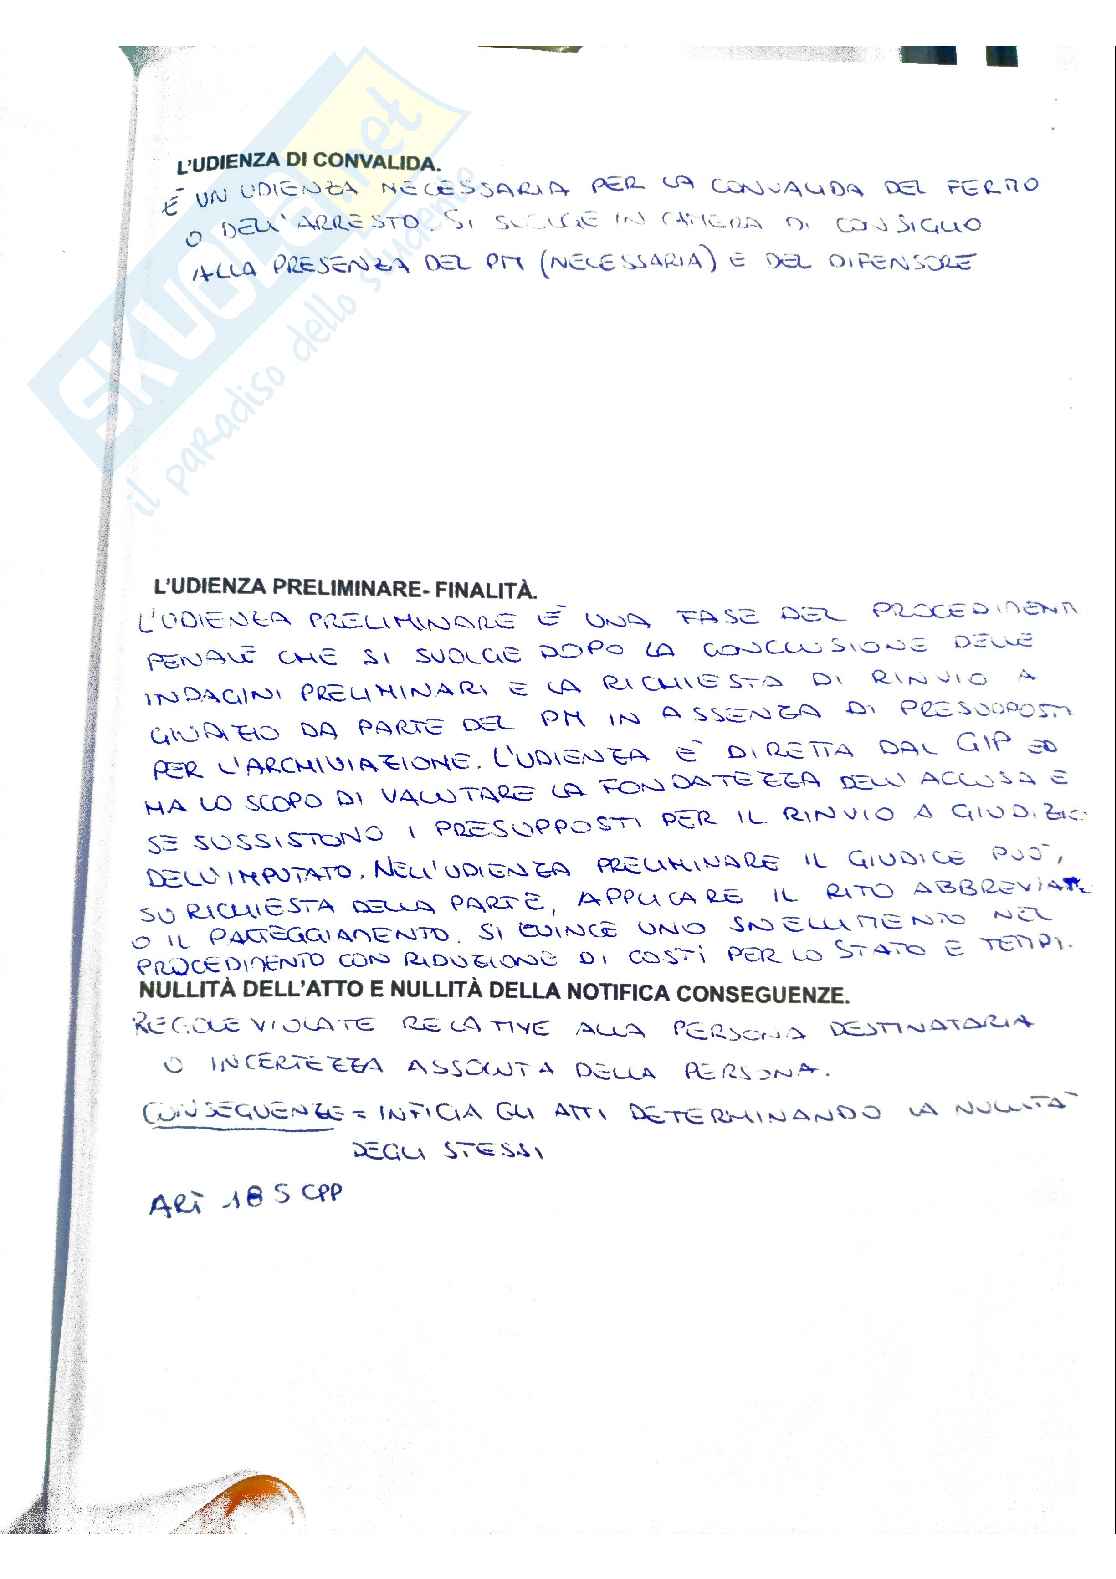 SKUOLA.net
il paradiso dello studente
L'UDIENZA DI CONVALIDA.
È UN UDIENZA NECESSARIA PER LA CONVALIDA DEL FERMO
O DELL'ARRESTO. SI SVOLGE IN CAMERA DI CONSIGLIO
ALLA PRESENZA DEL PM (NECESSARIA) E DEL DIFENSORE
L'UDIENZA PRELIMINARE- FINALITÀ.
L'UDIENZA PRELIMINARE È UNA FASE DEL PROCEDIMENT
PENALE CHE SI SVOLGE DOPO LA CONCLUSIONE DELLE
INDAGINI PRELIMINARI E LA RICHIESTA DI RINVIO A
GIUDIZIO DA PARTE DEL PM IN ASSENZA DI PRESUPPOSTI
PER L'ARCHIVIAZIONE. L'UDIENZA È DIRETTA DAL GIP ED
HA LO SCOPO DI VALUTARE LA FONDATEZZA DELL'ACCUSA E
SE SUSSISTONO I PRESUPPOSTI PER IL RINVIO A GIUDIZIO
DELL'IMPUTATO. NELL'UDIENZA PRELIMINARE IL GIUDICE PUÒ,
SU RICHIESTA DELLA PARTE, APPLICARE IL RITO ABBREVIAT
O IL PATTEGGIAMENTO. SI EVINCE UNO SNELLIMENTO NEL
PROCEDIMENTO CON RIDUZIONE DI COSTI PER LO STATO E TEMPI.
NULLITÀ DELL'ATTO E NULLITÀ DELLA NOTIFICA CONSEGUENZE.
REGOLE VIOLATE RELATIVE ALLA PERSONA DESTINATARIA
O INCERTEZZA ASSOLUTA DELLA PERSONA.
CONSEGUENZE = INFICIA GLI ATTI DETERMINANDO LA NULLITÀ
DEGLI STESSI
ART 185 CPP